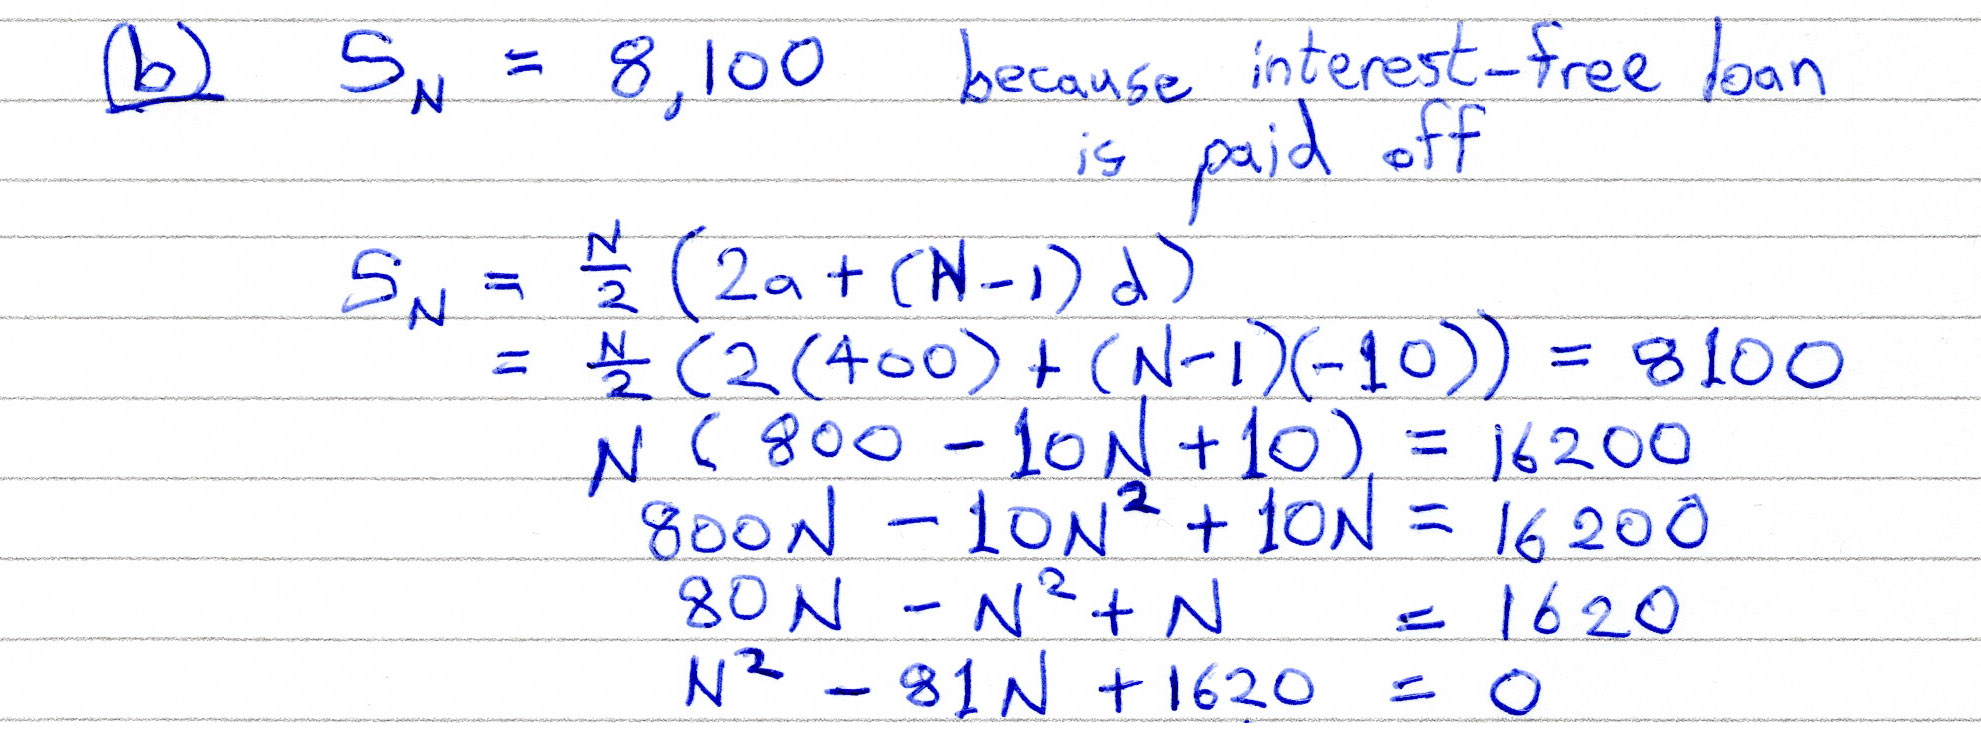 (b) S_N = 8,100 because interest-free loan
is paid off
S_N = N/2 (2a + (N-1) d)
= N/2 (2(400) + (N-1)(-10)) = 8100
N (800 - 10N + 10) = 16200
800N - 10N² + 10N = 16200
80N - N² + N = 1620
N² - 81N + 1620 = 0